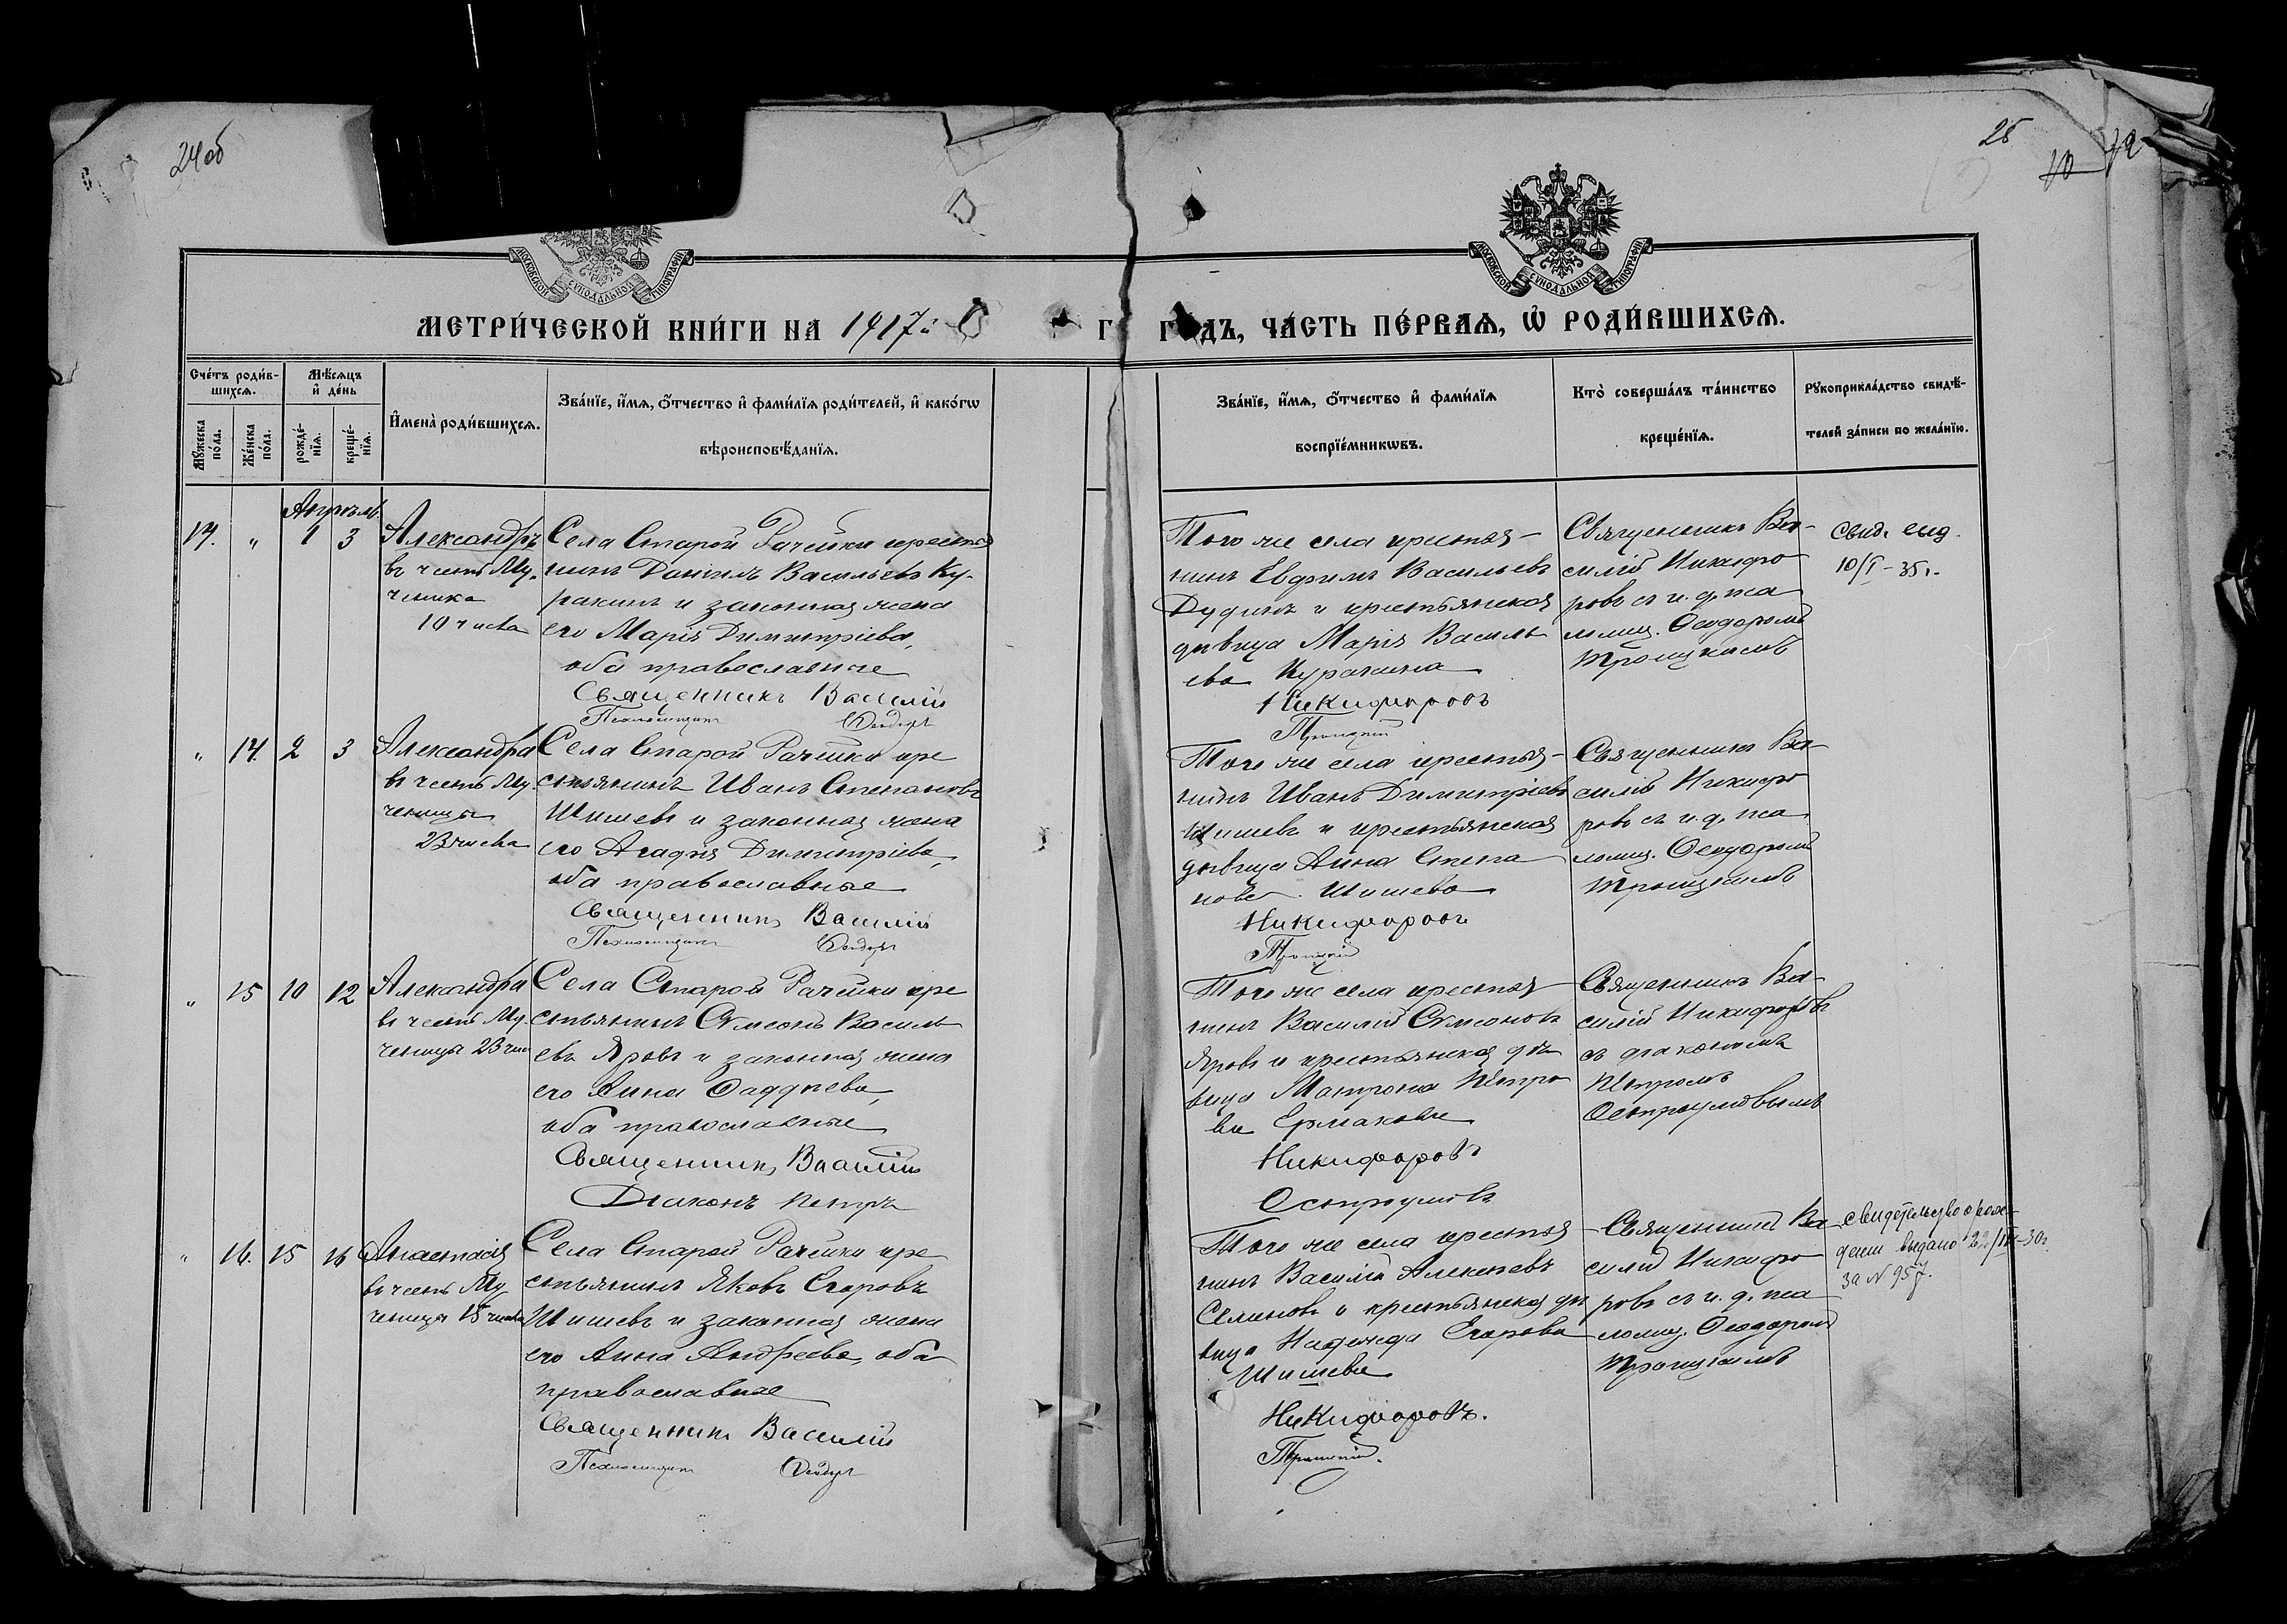 24об
25
МОСКОВСКОЙ СѴНОДАЛЬНОЙ ТИПОГРАФІИ
МОСКОВСКОЙ СѴНОДАЛЬНОЙ ТИПОГРАФІИ
МЕТРИ́ЧЕСКОЙ КНИ́ГИ НА 1917й
ГОДЪ, ЧА́СТЬ ПЕ́РВАЯ, Ѽ РОДИ́ВШИХСЯ.
Сче́тъ роди́в-
шихся.
Мѣ́сяцъ
и҆ де́нь
Мꙋ́жеска по́ла.
Же́нска по́ла.
рожде́-
нїя.
креще́-
нїя.
И҆мена̀ роди́вшихся.
Зва́нїе, и҆́мя, ѻ҆́тчество и҆ фами́лїя роди́телей, и҆ како́гѡ
вѣроисповѣ́данїя.
Зва́нїе, и҆́мя, ѻ҆́тчество и҆ фами́лїя
воспрїе́мникѡвъ.
Кто̀ соверша́лъ та́инство
креще́нїя.
Рꙋкоприкла́дство свидѣ́-
телей за́писи по жела́нїю.
Апрѣль
17. " 1 3
Александръ
въ честь Му-
ченика
Села Старой Рачейки крестья
нинъ Даніилъ Васильевъ Ку-
ракинъ и законная жена
его Марія Димитріева,
оба православные
Священникъ Василій
Псаломщикъ Ѳеодоръ
Того же села крестья-
нинъ Евфимъ Васильевъ
Дудинъ и крестьянская
дѣвица Марія Василь
ева Куракина
Никифоровъ
Троицкій
Священникъ Ва-
силій Никифо
ровъ съ и. д. пса
ломщ. Ѳеодоромъ
Троицкимъ
Свид. выд.
10/I-35г.
" 14. 2 3
Александра
въ честь Му-
ченицы
23 числа
Села Старой Рачейки кре
стьянинъ Иванъ Степановъ
Шишевъ и законная жена
его Агафія Димитріева,
оба православные
Священникъ Василій
Псаломщикъ Ѳеодоръ
Того же села крестья-
нинъ Иванъ Димитріевъ
Шишевъ и крестьянская
дѣвица Анна Степа
нова Шишева
Никифоровъ
Троицкій
Священникъ Ва-
силій Никифо
ровъ съ и. д. пса
ломщ. Ѳеодоромъ
Троицкимъ
" 15 10 12
Александра
въ честь Му-
ченицы 23 чис
Села Старой Рачейки кре
стьянинъ Сѵмеонъ Василь
евъ Яровъ и законная жена
его Анна Фаддѣева,
оба православные
Священникъ Василій
Діаконъ Петръ
Того же села крестья
нинъ Василій Сѵмеоновъ
Яровъ и крестьянская дѣ
вица Матрона Петро
ва Ермакова
Никифоровъ
Остроумовъ
Священникъ Ва-
силій Никифоровъ
съ діакономъ
Петромъ
Остроумовымъ
" 16. 15 16
Анастасія
въ честь Му
ченицы 15 числа
Села Старой Рачейки кре
стьянинъ Яковъ Егоровъ
Шишевъ и законная жена
его Анна Андреева, оба
православные
Священникъ Василій
Псаломщикъ Ѳеодоръ
Того же села крестья
нинъ Василій Алексѣевъ
Семеновъ и крестьянская дѣ
вица Надежда Егорова
Шишева
Никифоровъ.
Троицкій.
Священникъ Ва-
силій Никифо
ровъ съ и. д. пса
ломщ. Ѳеодоромъ
Троицкимъ
Свидетельство о рож-
дении выдано
за № 957.